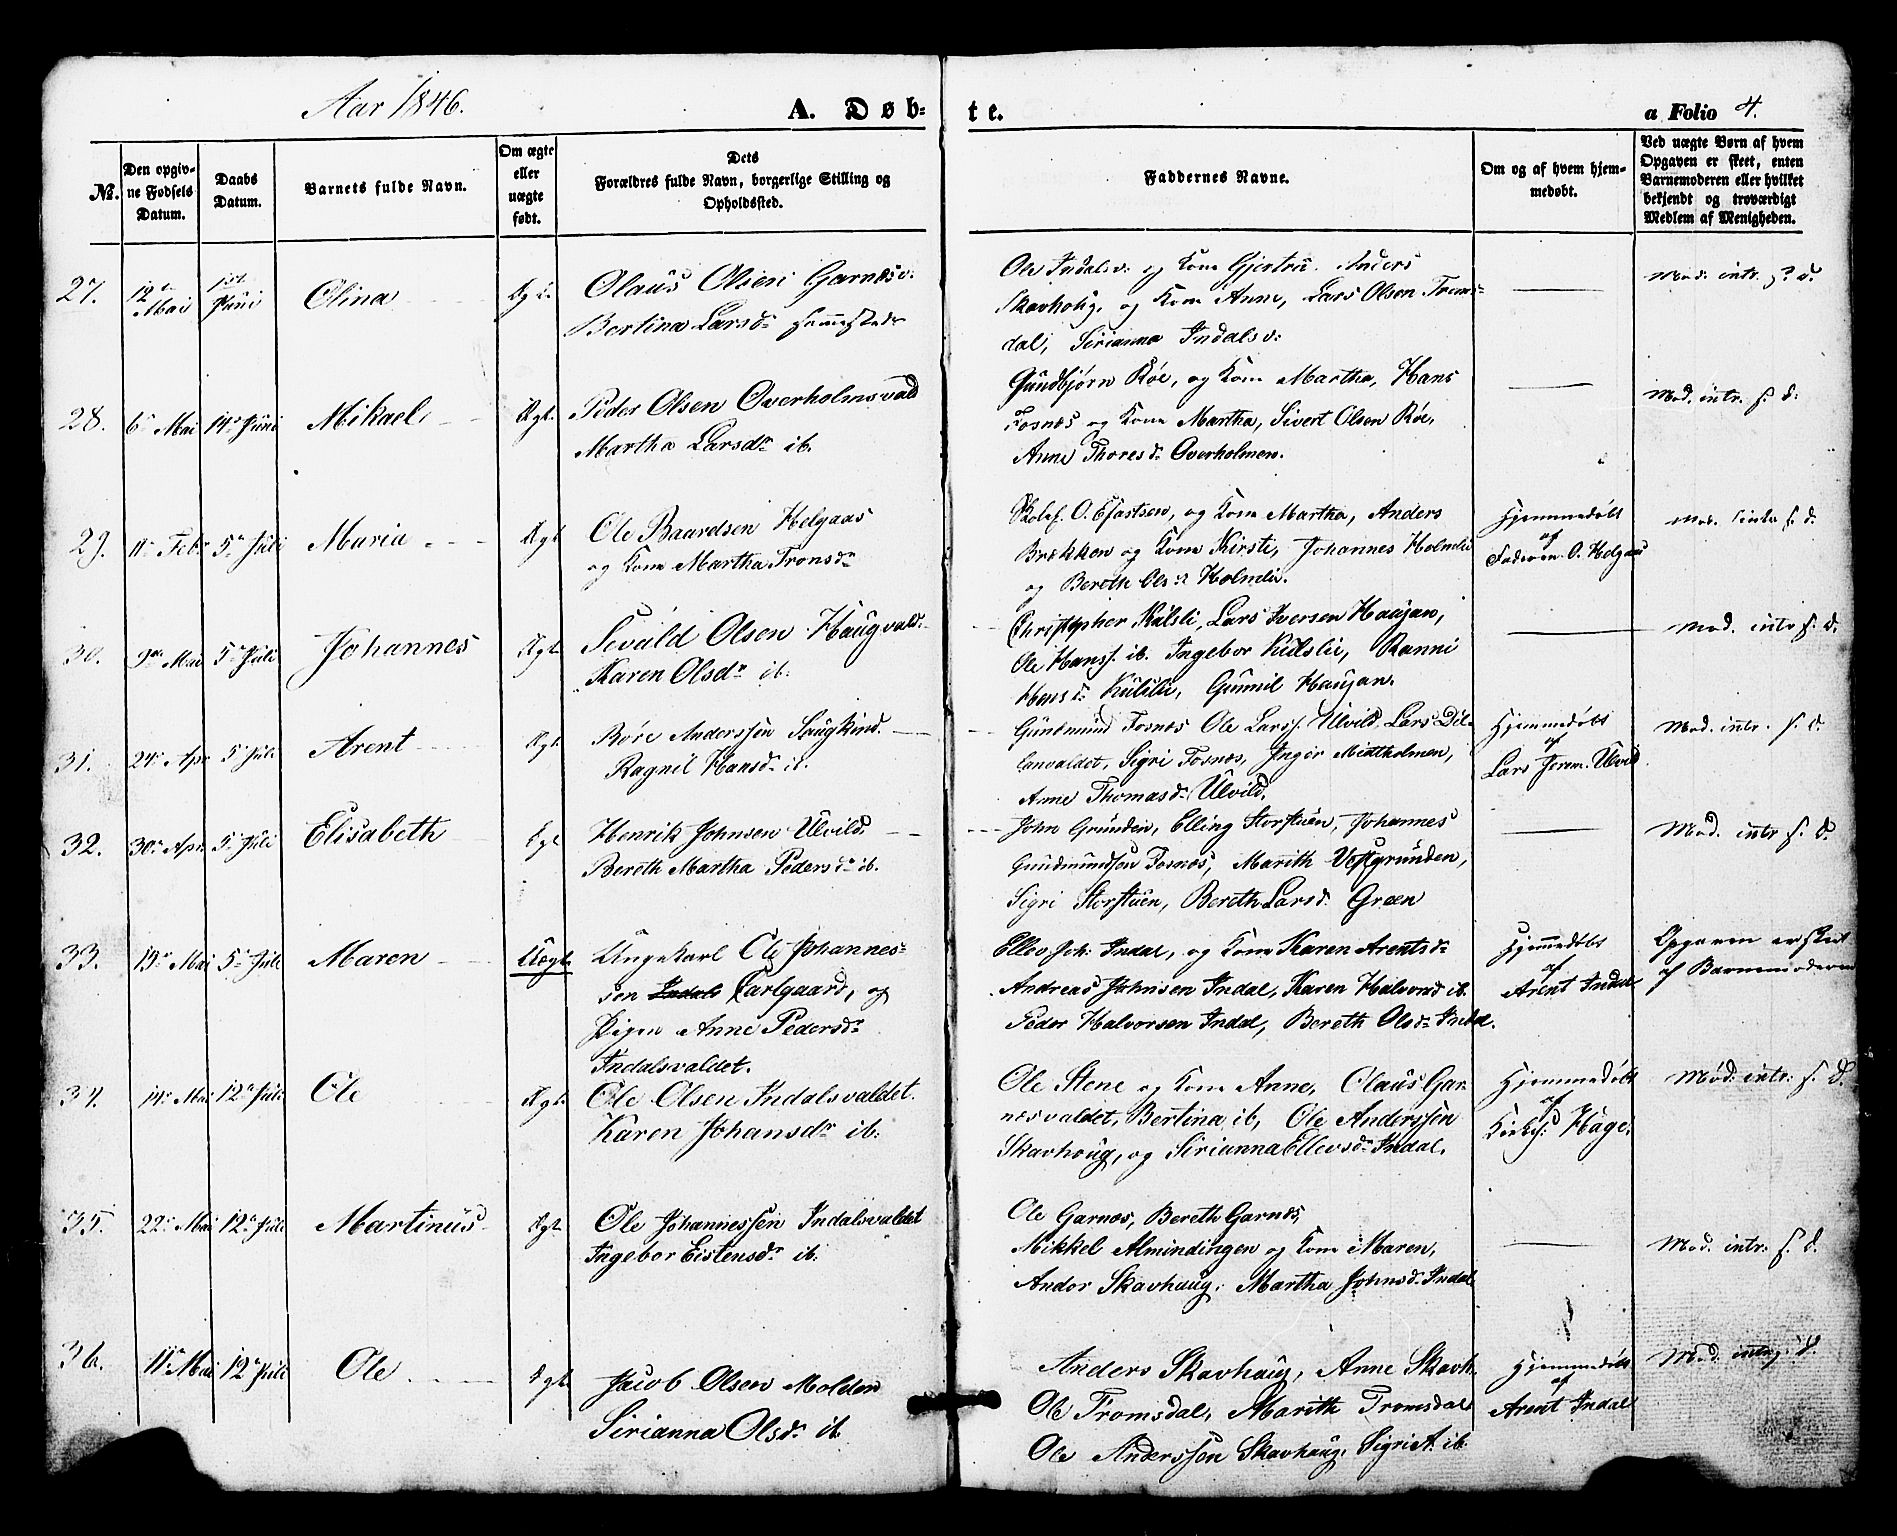 Aar 1846.
A. Døb-
te.
a Folio 4.
No.
Den opgiv-
ne Fødsels
Datum.
Daabs
Datum.
Barnets fulde Navn.
Om ægte
eller
uægte
født.
Dets
Forældres fulde Navn, borgerlige Stilling og
Opholdssted.
Faddernes Navne.
Om og af hvem hjem-
medøbt.
Ved uægte Børn af hvem
Opgaven er skeet, enten
Barnemoderen eller hvilket
bekjendt og troværdigt
Medlem af Menigheden.
27.
12te Mai
1ste Juni
Olina
Ægt.
Olaus Olsen Garnesv:
Bertina Larsdr sammesteds
Ole Indalsv: og Kone Gjertru. Anders
Skavhoug, og Kone Anne, Lars Olsen Troms-
dal, Sirianna Indalsv:
Mod. intr. f. d.
28.
6te Mai
14de Juni
Mikael
Ægt.
Peder Olsen Overholmsvald
Martha Larsdr ib.
Gundbjørn Røe, og Kone Martha, Hans
Fosnæs og Kone Martha, Sivert Olsen Røe,
Anne Thoresdr Overholmen.
Mod. intr. f. d.
29.
11te Febr
5te Juli
Maria
Ægt
Ole Baardsen Helgaas
og Kone Martha Tronsdr
Skolef. O. Efastsen, og Kone Martha, Anders
Brækken og Kone Kirsti, Johannes Holmlie
og Bereth Olsdr Holmlie.
Hjemmedøbt
af
Faderen O. Helgaas
Mod. intr. f. d.
30.
9de Mai
5te Juli
Johannes
Ægt.
Sivald Olsen Haugvald.
Karen Olsdr ib.
Christopher Kulsli, Lars Iversen Haugan,
Ole Hanss. ib. Ingebor Kulslie, Ranni
Hansdr Kulslie, Gunnil Haugan.
Mod. intr. f. d.
31.
24de Apr
5te Juli
Arent
Ægt
Røre Anderssen Saugkind.
Ragnil Hansdr ib.
Gundmund Fosnæs Ole Larss. Ulvild, Lars Dil-
lanvaldet, Sigri Fosnæs, Inger Midtholmen,
Anne Thomasdr Ulvild.
Hjemmedøbt
af
Lars Jerem. Ulvild
Mod. intr. f. d.
32.
30te Apr
5te Juli
Elisabeth
Ægt
Henrik Johnsen Ulvild.
Bereth Martha Pedersdr ib.
John Grunden, Elling Storstuen, Johannes
Gundmundsen Fosnæs, Marith Vestgrunden,
Sigri Storstuen, Bereth Larsd. Green
Mod. intr. f. d.
33.
19de Mai
5te Juli
Maren
Uægt.
Ungekarl Ole Johannes-
sen Indals Carlgaard, og
Pigen Anne Pedersdr
Indalsvaldet.
Ellev Joh: Indal, og Kone Karen Arentsdr
Andreas Johnsen Indal, Karen Halvorsd ib.
Peder Halvorsen Indal, Bereth Olsdr Indal.
Hjemmedøbt
af
Arent Indal
Opgaven er skeet
af Barnemoderen
34.
14de Mai
12te Juli
Ole
Ægt.
Ole Olsen Indalsvaldet.
Karen Johansdr ib:
Ole Stene og Kone Anne, Olaus Gar-
næsvaldet, Bertina ib, Ole Anderssen
Skavhoug, og Sirianna Ellevsdr Indal.
Hjemmedøbt
af
Kirkes: Hage.
Mod. intr. f. d.
35.
22de Mai
12te Juli
Martinus
Ægt
Ole Johannessen Indalsvaldet
Ingebor Eistensdr ib.
Ole Garnæs, Bereth Garnæs,
Mikkel Almindingen og Kone Maren,
Andor Skavhaug, Martha Johnsd. Indal
Mod. intr. f. d.
36.
11te Mai
12te Juli
Ole
Ægt.
Jacob Olsen Molden
Sirianna Olsdr ib.
Anders Skavhaug, Anne Skavh.
Ole Tromsdal, Marith Tromsdal
Ole Anderssen Skavhaug, Sigri A. ib.
Hjemmedøbt
af
Arent Indal
Mod. intr. f. d.